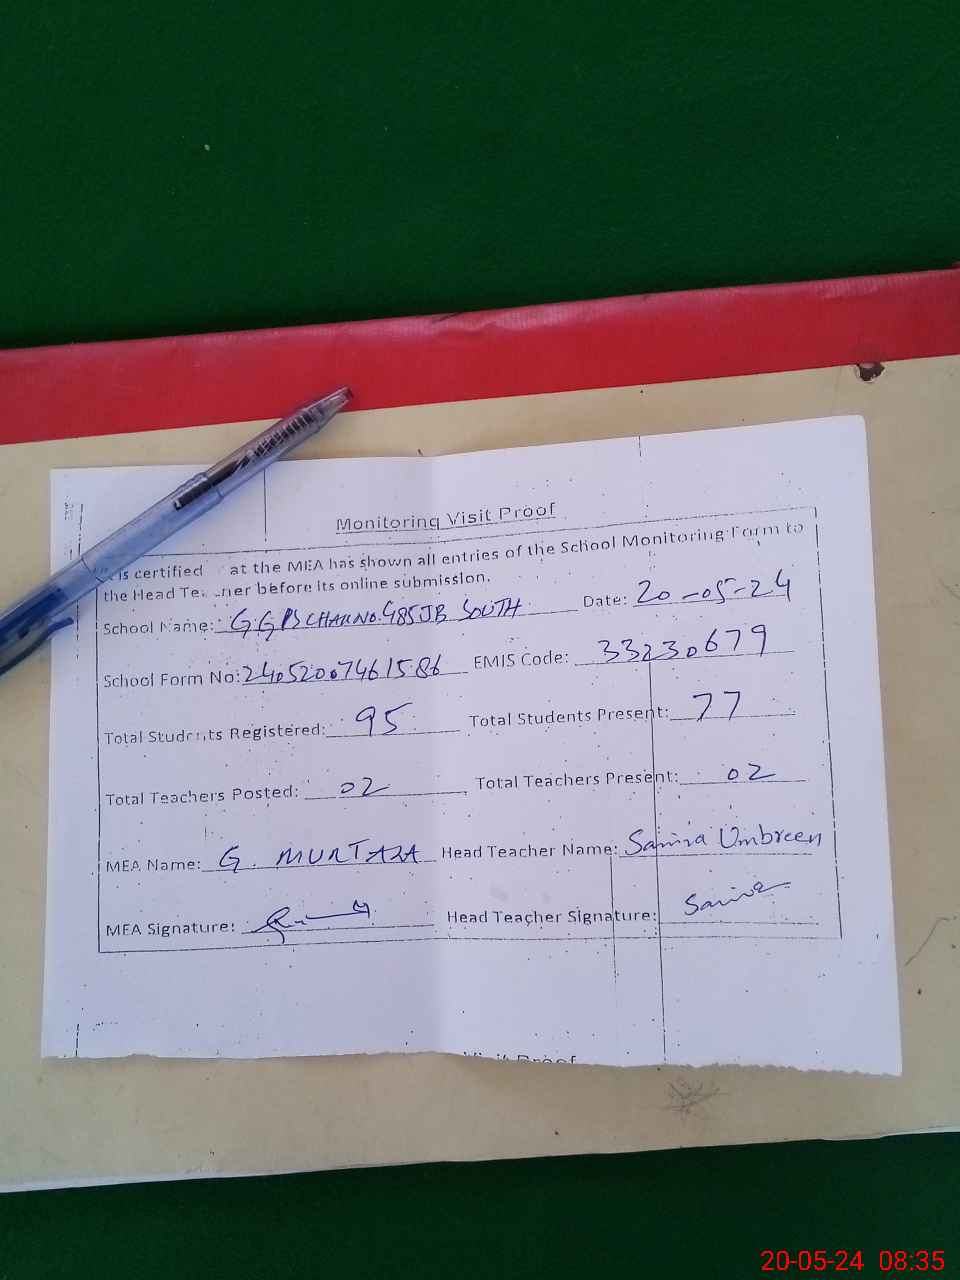 Monitoring Visit Proof
is certified at the MEA has shown all entries of the School Monitoring Form to
the Head before its online submission.
School Name: G.G.PS CHAK NO. 485JB SOUTH Date: 20-05-24
School Form No: 24052007461586 EMIS Code: 33230679
Total Students Registered: 95 Total Students Present: 77
Total Teachers Posted: 02 Total Teachers Present: 02
MEA Name: G. MURTAZA Head Teacher Name: Samra Umbreen
MEA Signature: Head Teacher Signature:
Visit Proof
20-05-24 08:35